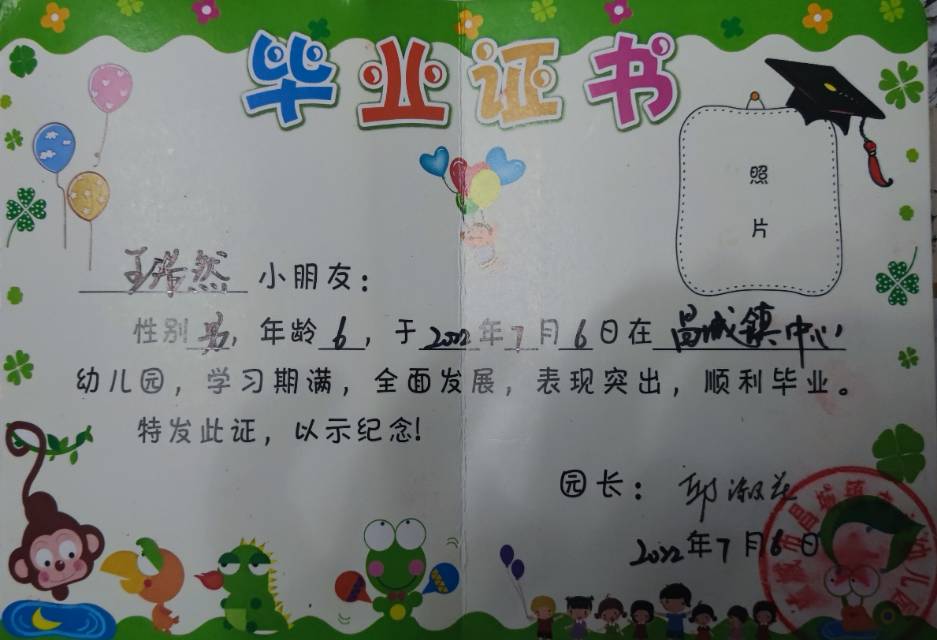 毕业证书
照
片
王浩然 小朋友：
性别男，年龄6，于2022年7月6日在昌城镇中心
幼儿园，学习期满，全面发展，表现突出，顺利毕业。
特发此证，以示纪念！
园长：郭淑花
2022年7月6日